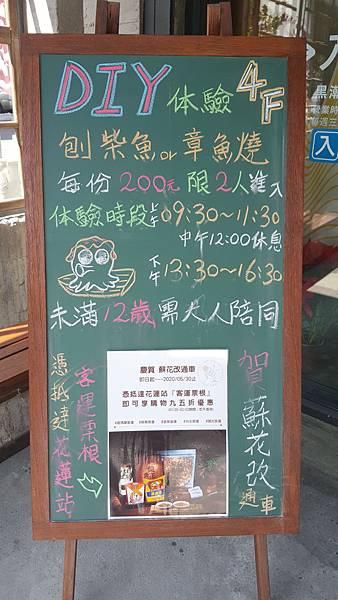 DIY 體驗 4F
刨柴魚or章魚燒
每份200元限2人進入
体驗時段 上午 09:30~11:30
中午12:00休息
下午 13:30~16:30
未滿12歲需大人陪同
憑抵達花蓮站
客運票根
慶賀 蘇花改通車
即日起----2020/05/30止
憑抵達花蓮站『客運票根』
即可享購物九五折優惠
賀蘇花改通車
入